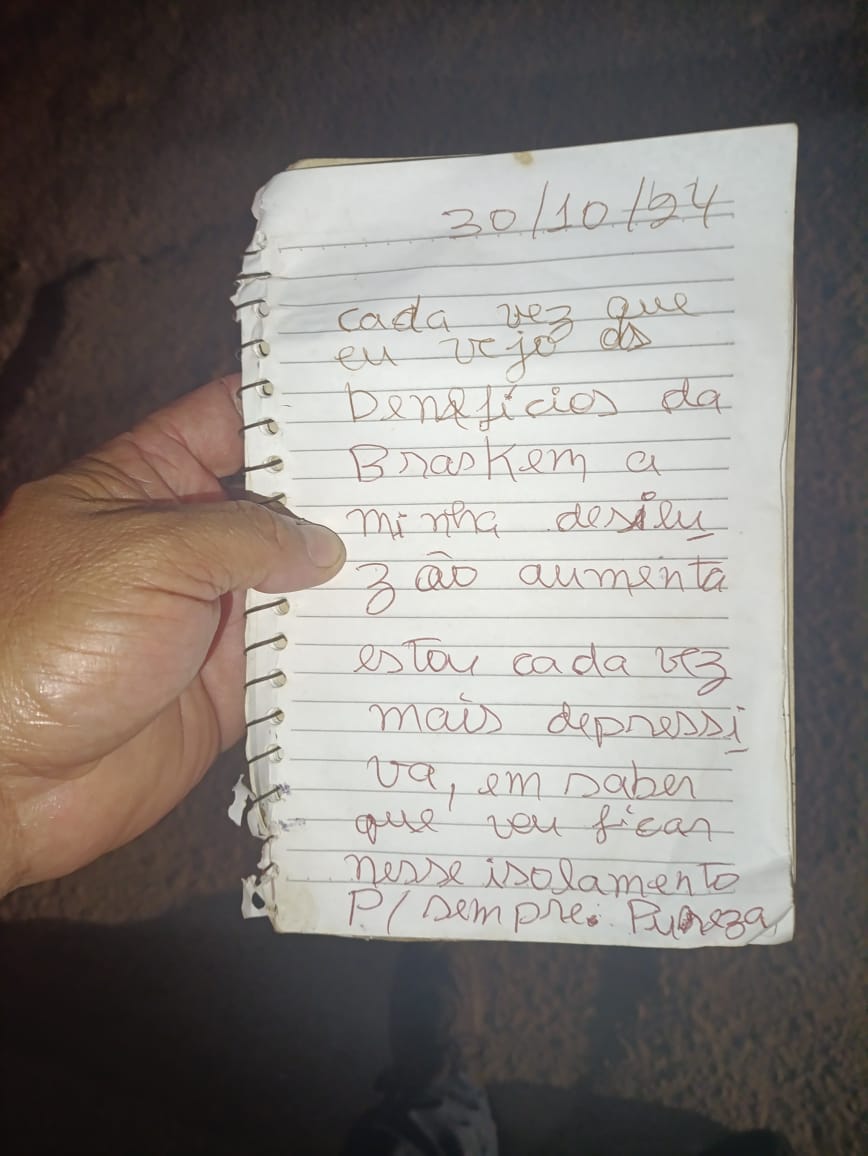 30/10/24
cada vez que
eu vejo os
benefícios da
Braskem a
minha desilu
zão aumenta
estou cada vez
mais depressi
va, em saber
que vou ficar
nesse isolamento
P/ sempre. Pureza